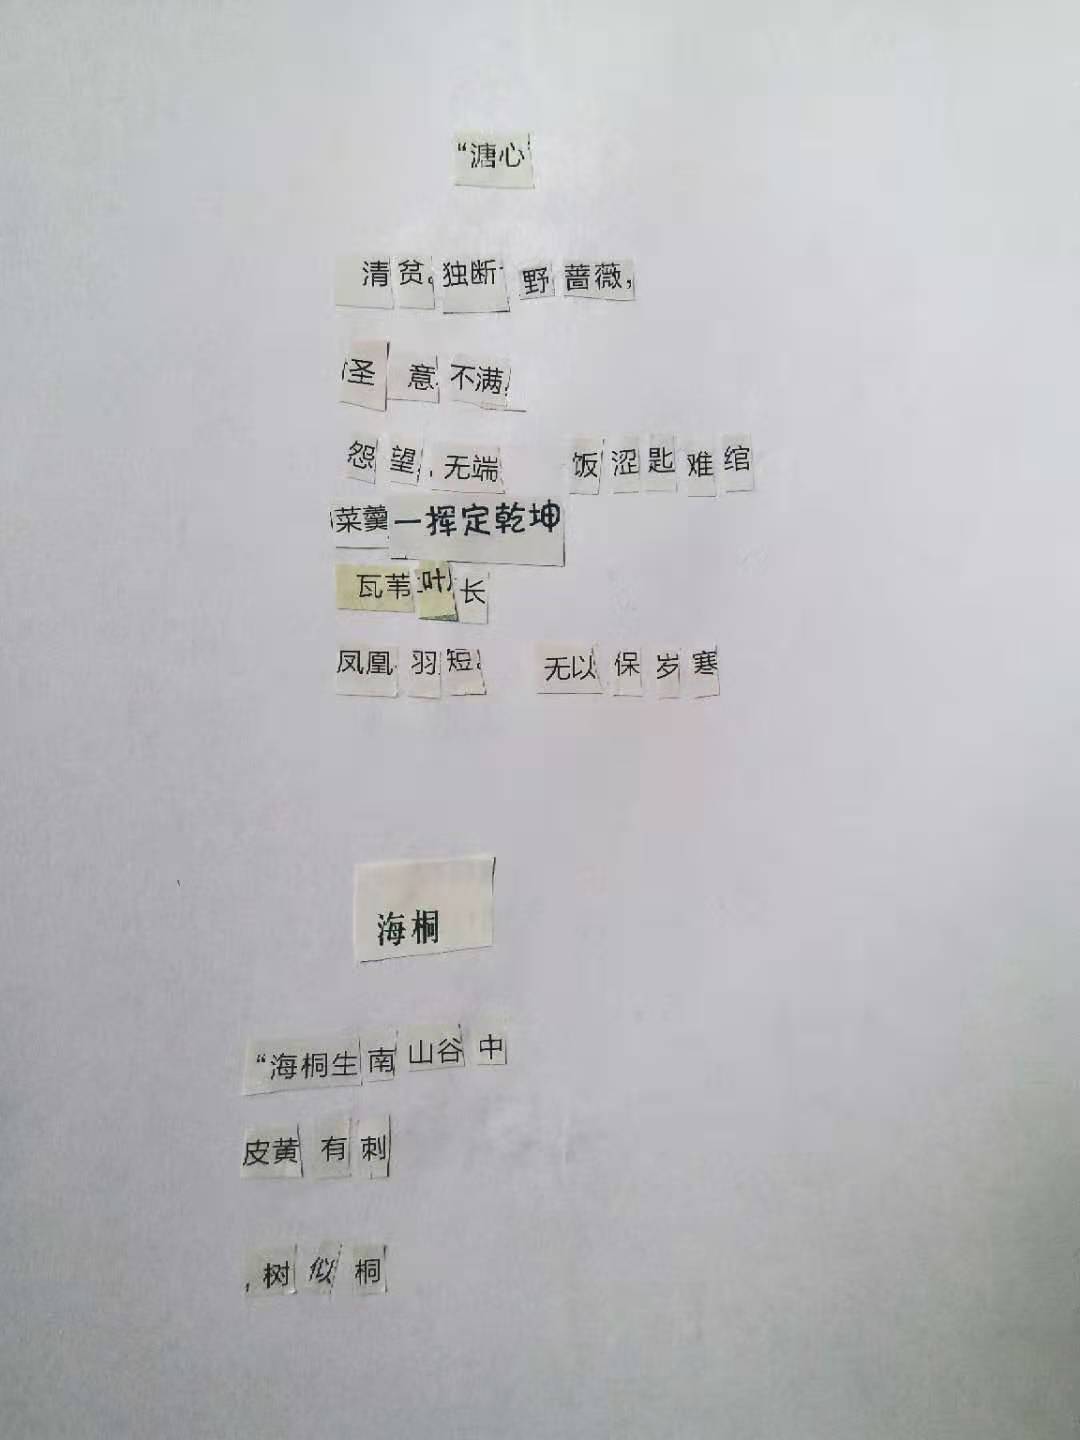 “溏心
清贫。独断 野蔷薇,
圣意不满,
怨望,无端 饭涩匙难绾
菜羹一挥定乾坤
瓦苇叶长
凤凰羽短。 无以保岁寒
海桐
“海桐生南山谷中
皮黄有刺
,树似桐